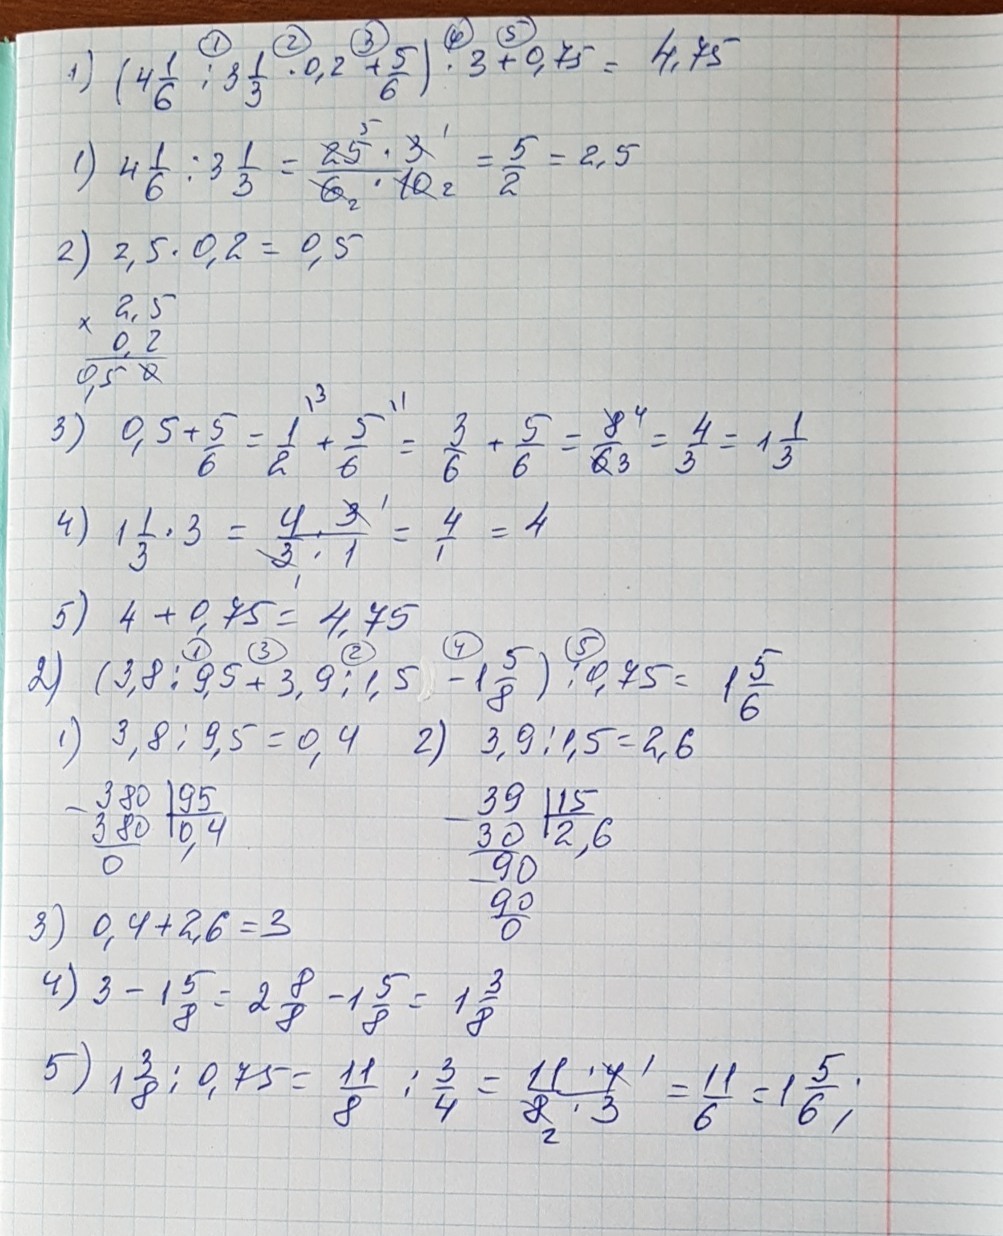 ① ② ③ ④ ⑤
1) (4 1/6 : 3 1/3 · 0,2 + 5/6) · 3 + 0,75 = 4,75
1) 4 1/6 : 3 1/3 = 25 5 · 3 1 / 6 2 · 10 2 = 5/2 = 2,5
2) 2,5 · 0,2 = 0,5
× 2,5
0,2
0,5 0
3) 0,5 + 5/6 = 1/2 \3 + 5/6 \1 = 3/6 + 5/6 = 8 4 / 6 3 = 4/3 = 1 1/3
4) 1 1/3 · 3 = 4 · 3 1 / 3 1 · 1 = 4/1 = 4
5) 4 + 0,75 = 4,75
① ③ ② ④ ⑤
2) (3,8 : 9,5 + 3,9 : 1,5 - 1 5/8) : 0,75 = 1 5/6
1) 3,8 : 9,5 = 0,4 2) 3,9 : 1,5 = 2,6
- 380 | 95 - 39 | 15
380 0,4 30 2,6
0 - 90
90
0
3) 0,4 + 2,6 = 3
4) 3 - 1 5/8 = 2 8/8 - 1 5/8 = 1 3/8
5) 1 3/8 : 0,75 = 11/8 : 3/4 = 11 · 4 1 / 8 2 · 3 = 11/6 = 1 5/6;